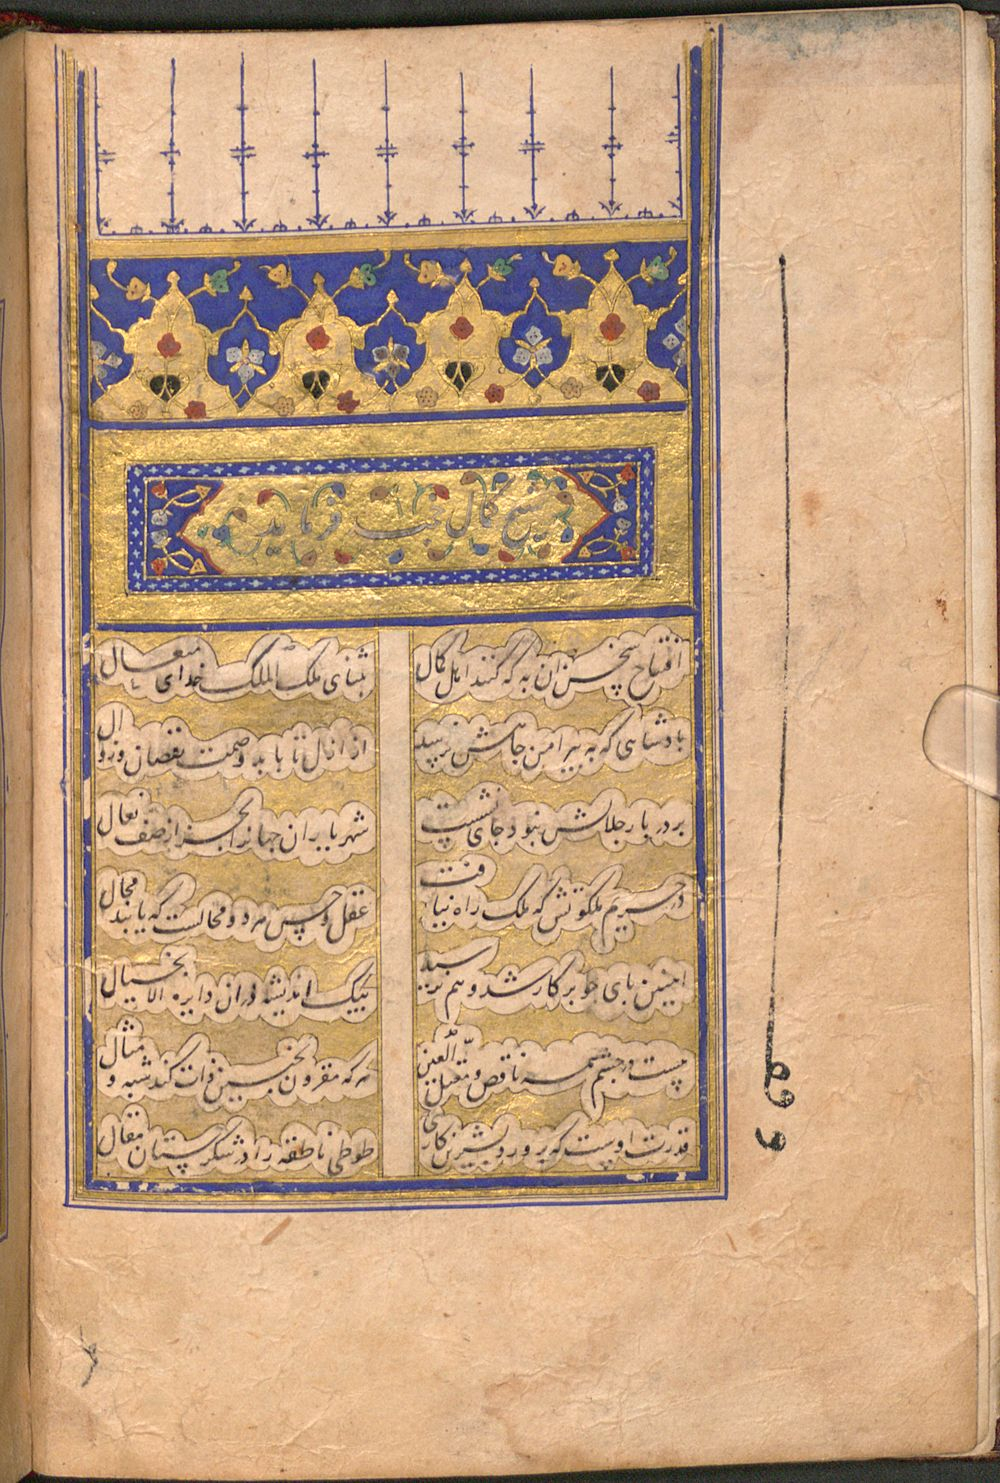 شیخ کمال خجند فرماید
افتتاح سخن آن به که کنند اهل کمال
بثنای ملک الملک خدای متعال
پادشاهی که به پیرامن جاهش نرسید
از ازل تا بابد وصمت نقصان و زوال
بر در بار جلالش نبود جای نشست
شهریاران جهانرا بجز از صف نعال
در حریم ملکوتش که ملک راه نیافت
عقل و حس هر دو محالست که یابند مجال
اینچنین پای چو پرکار شد و هم نرسید
پیک اندیشه در آن دایره الا بخیال
هست در چشم همه ناقص و معیل العین
هر که مقرون بچنین ذات کند شبه و مثال
قدرت اوست که پرورد بشیرین کاری
طوطی ناطقه را در شکرستان مقال
وقف